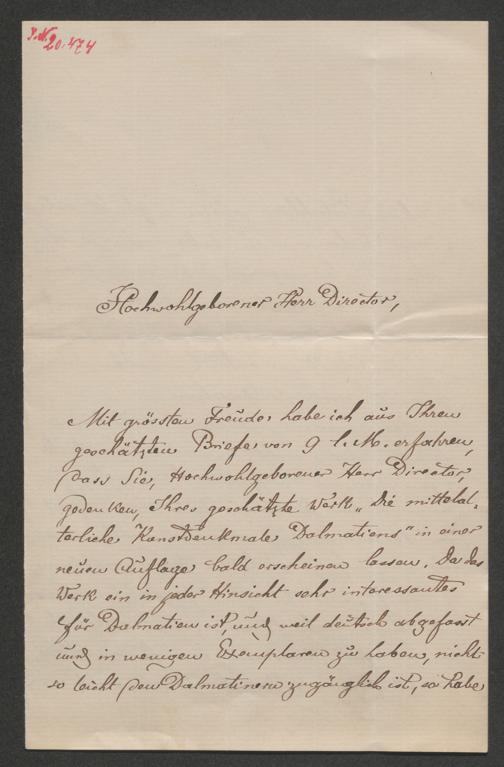 J.N. 20.474
Hochwohlgeborener Herr Director,
Mit grössten Freude habe ich aus Ihren
geschätzten Briefe von 9 l. M. erfahren,
dass Sie, Hochwohlgeborener Herr Director,
gedenken, Ihres geschätzte Werk „Die mittelal-
terliche Kunstdenkmale Dalmatiens" in einer
neuen Auflage bald erscheinen lassen. Da das
Werk ein in jeder Hinsicht sehr interessantes
für Dalmatien ist, und weil deutsch abgefasst
und in wenigen Exemplaren zu haben, nicht
so leicht den Dalmatinern zugänglich ist, so habe